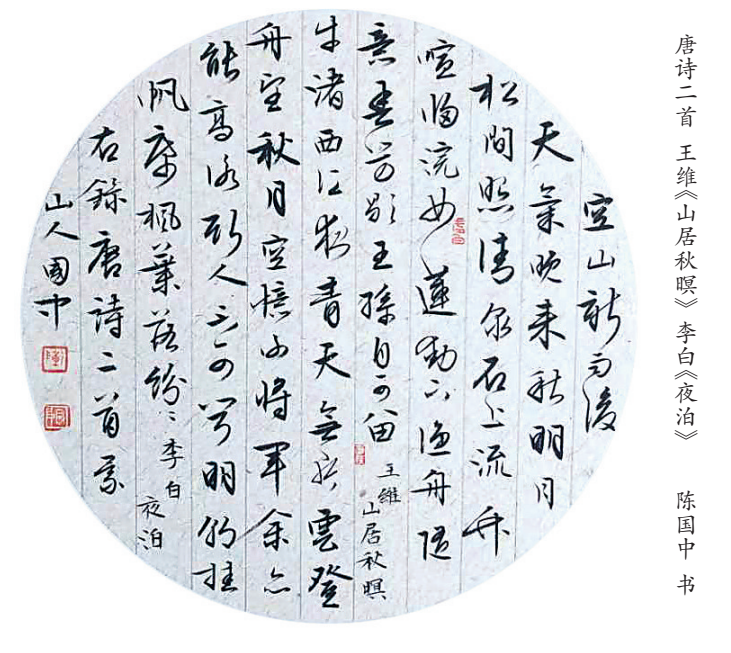 唐诗二首 王维《山居秋暝》 李白《夜泊》 陈国中 书
空山新雨後
天氣晚来秋明月
松間照清泉石上流竹
喧歸浣女蓮動下漁舟隨
意春芳歇王孫自可留
王維
山居秋暝
牛渚西江夜青天無片雲登
舟望秋月空憶謝將軍余亦
能高詠斯人不可聞明朝挂
帆席楓葉落紛〻
李白
夜泊
右錄唐詩二首
山人國中